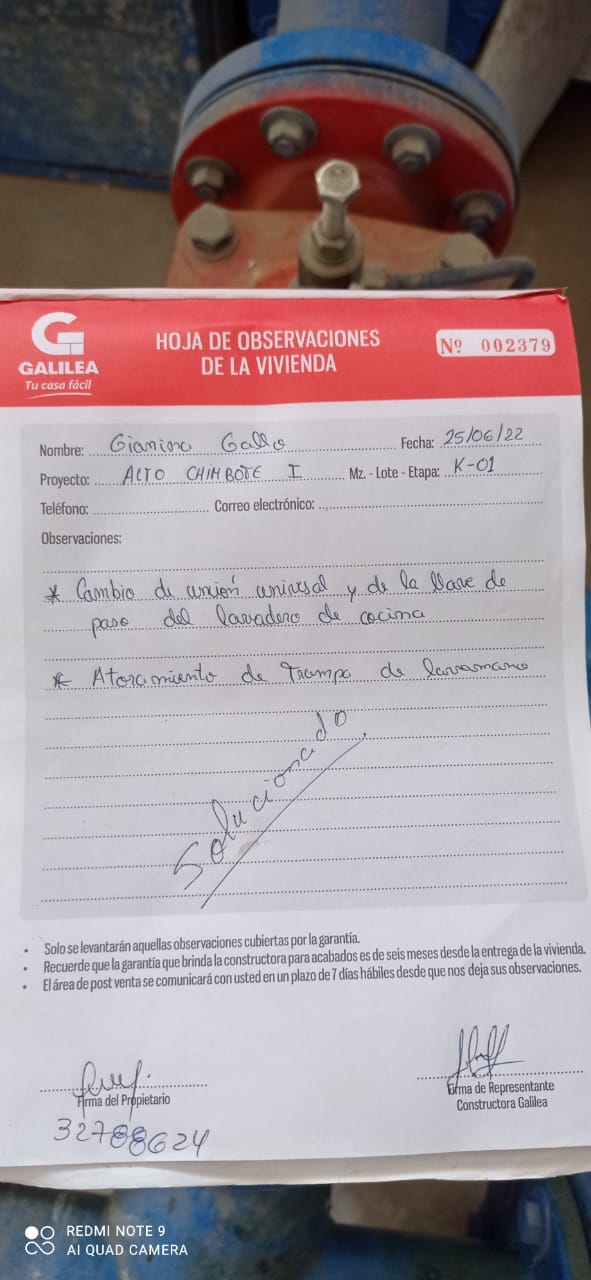 GALILEA
Tu casa fácil
HOJA DE OBSERVACIONES
DE LA VIVIENDA
Nº 002379
Nombre: Gianina Gallo Fecha: 25/06/22
Proyecto: ALTO CHIMBOTE I Mz. - Lote - Etapa: K-01
Teléfono: Correo electrónico:
Observaciones:
* Cambio de unión universal y de la llave de
paso del lavadero de cocina
* Atoramiento de Trampa de lavamano
Solucionado
• Solo se levantarán aquellas observaciones cubiertas por la garantía.
• Recuerde que la garantía que brinda la constructora para acabados es de seis meses desde la entrega de la vivienda.
• El área de post venta se comunicará con usted en un plazo de 7 días hábiles desde que nos deja sus observaciones.
Firma del Propietario
Firma de Representante
Constructora Galilea
REDMI NOTE 9
AI QUAD CAMERA